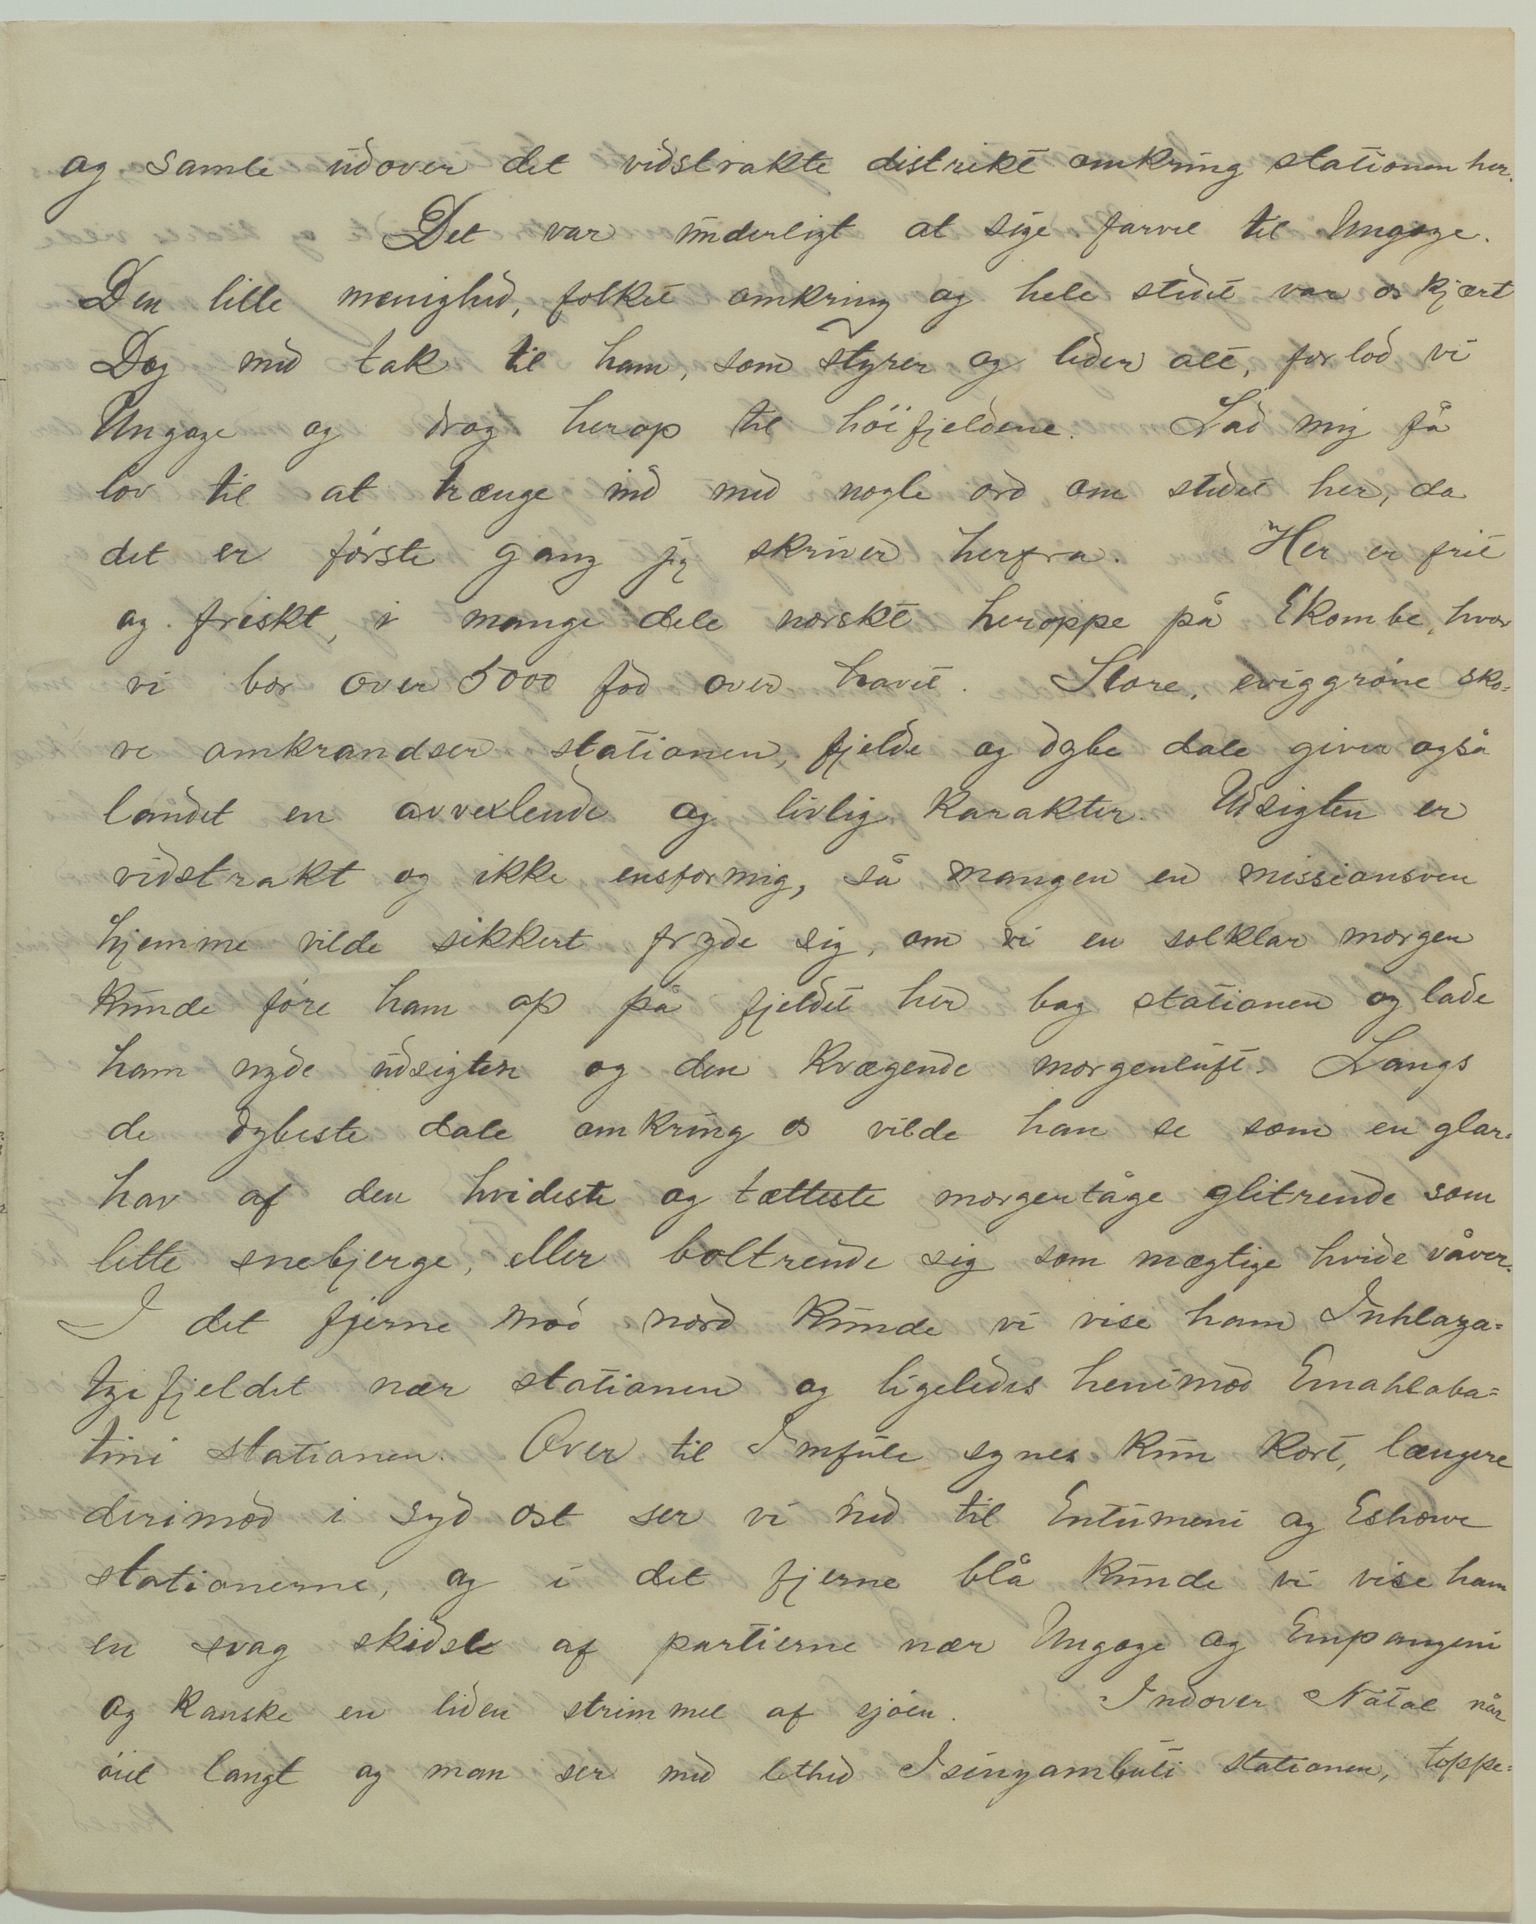 og samle udover det vidstrakte distrikt omkring stationen her.
Det var underligt at sige farvel til Ungoye.
Den lille menighed, folket omkring og hele stedet var os kjært
Dog med tak til ham, som styrer og leder alt, forlod vi
Ungoye og drog herop til höifjeldene. Lad mig få
lov til at trænge ind med nogle ord om stedet her, da
det er förste gang jeg skriver herfra. Her er frit
og friskt, i mange dele norskt heroppe på Ekombe, hvor
vi bor over 5000 fod over havet. Store, eviggröne sko-
ve omkrandser stationen, fjelde og dybe dale giver også
landet en avvexlende og livlig karakter. Udsigten er
vidstrakt og ikke ensformig, så mangen en missionsven
hjemme vilde sikkert fryde sig, om vi en solklar morgen
kunde före ham op på fjeldet her bag stationen og lade
ham nyde udsigten og den kvægende morgenluft. Langs
de dybeste dale omkring os vilde han se som en glar-
hav af den hvideste og tætteste morgentåge glitrende som
lette snebjerge, eller boltrende sig som mægtige hvide våver.
I det fjerne mod nord kunde vi vise ham Inhlaza-
tzifjeldet nær stationen og ligeledes henimod Emahlaba-
tini stationen. Over til Imfule synes kun kort, længere
derimod i syd ost ser vi ned til Entumeni og Eshowe
stationerne, og i det fjerne blå kunde vi vise ham
en svag skidse af partierne nær Ungoye og Empangeni
og kanske en liden strimmel af sjöen. Indover Natal når
öiet langt og man ser med lethed Isinyambuti stationen, toppe-